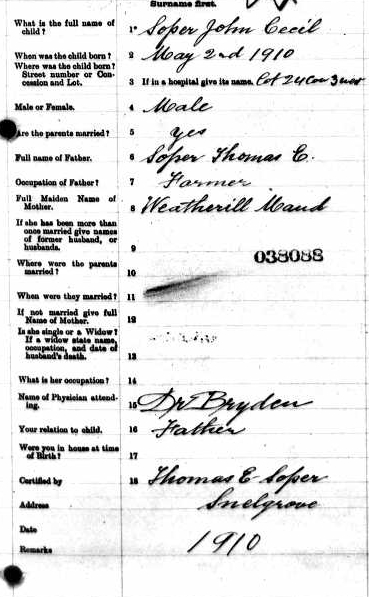 Surname first.
What is the full name of child? 1 Soper John Cecil
When was the child born? 2 May 2nd 1910
Where was the child born?
Street number or Con-
cession and Lot. 3 If in a hospital give its name. Lot 24 Con 3
Male or Female. 4 Male
Are the parents married? 5 yes
Full name of Father. 6 Soper Thomas E.
Occupation of Father? 7 Farmer
Full Maiden Name of
Mother. 8 Weatherill Maud
If she has been more than
once married give names
of former husband, or
husbands. 9
038088
Where were the parents
married? 10
When were they married? 11
If not married give full
Name of Mother. 12
Is she single or a Widow?
If a widow state name,
occupation, and date of
husband's death. 13
What is her occupation? 14
Name of Physician attend-
ing. 15 Dr Bryden
Your relation to child. 16 Father
Were you in house at time
of Birth? 17
Certified by 18 Thomas E Soper
Address Snelgrove
Date
Remarks 1910